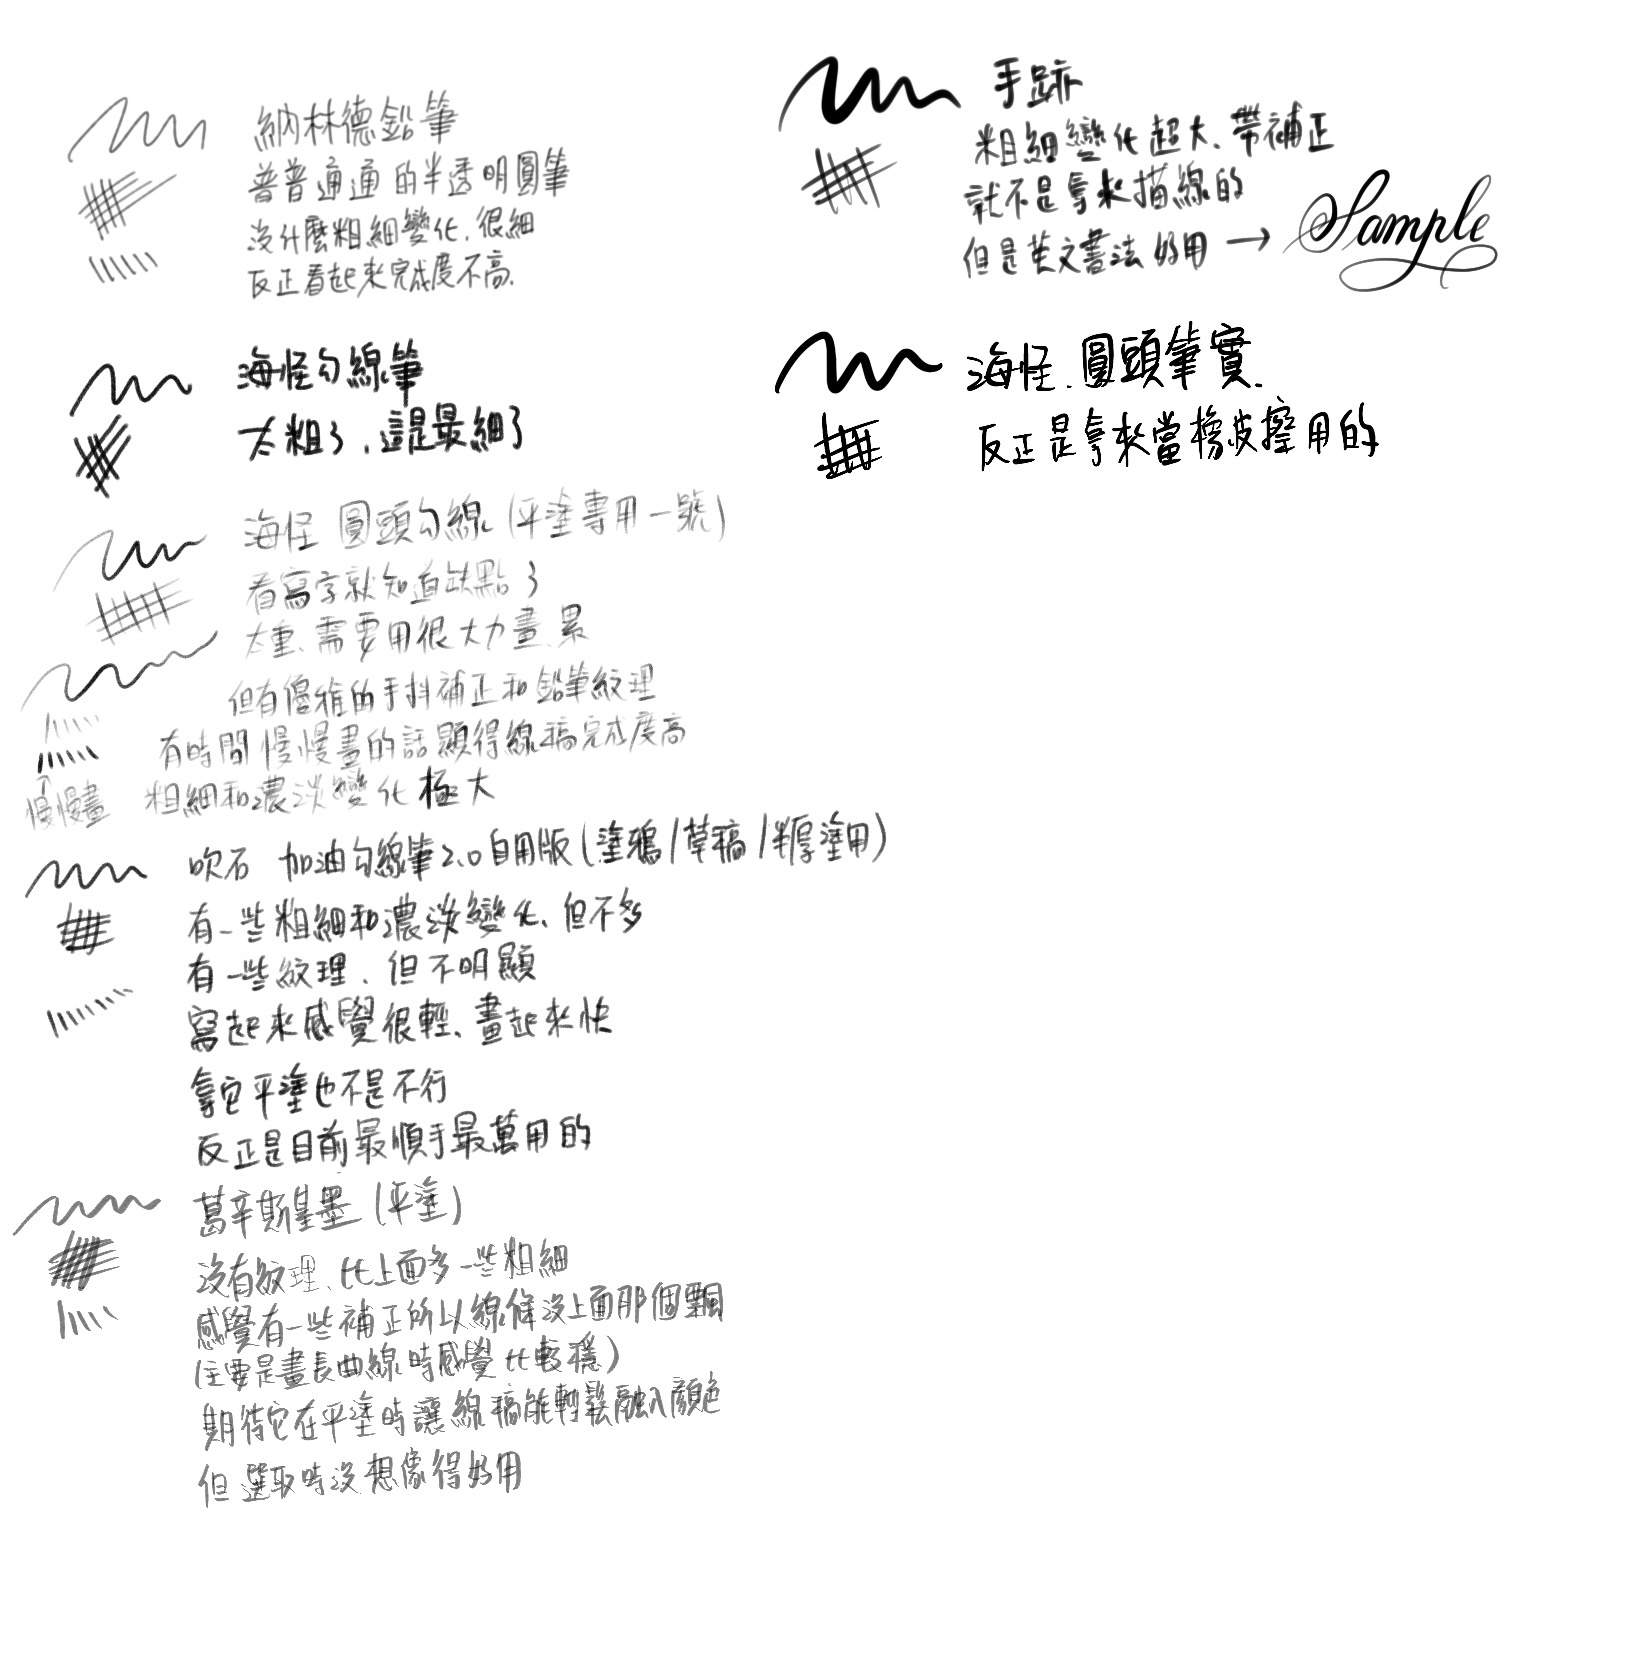 納林德鉛筆
普普通通的半透明圓筆
沒什麼粗細變化,很細
反正看起來完成度不高.
海怪勾線筆
太粗了,這是最細了
海怪 圓頭勾線(平塗專用一號)
看寫字就知道缺點了
太重、需要用很大力畫、累
但有優雅的手抖補正和鉛筆紋理
有時間慢慢畫的話顯得線稿完成度高
粗細和濃淡變化極大
↑
慢慢畫
吹石 加油勾線筆2.0自用版(塗鴉/草稿/半厚塗用)
有一些粗細和濃淡變化、但不多
有一些紋理、但不明顯
寫起來感覺很輕、畫起來快
拿它平塗也不是不行
反正是目前最順手最萬用的
葛辛斯星墨(平塗)
沒有紋理、比上面多一些粗細
感覺有一些補正所以線條沒上面那個飄
(主要是畫長曲線時感覺比較穩)
期待它在平塗時讓線稿能輕鬆融入顏色
但選取時沒想像得好用
手跡
粗細變化超大、帶補正
就不是拿來描線的
但是英文書法好用 → Sample
海怪.圓頭筆實.
反正是拿來當橡皮擦用的